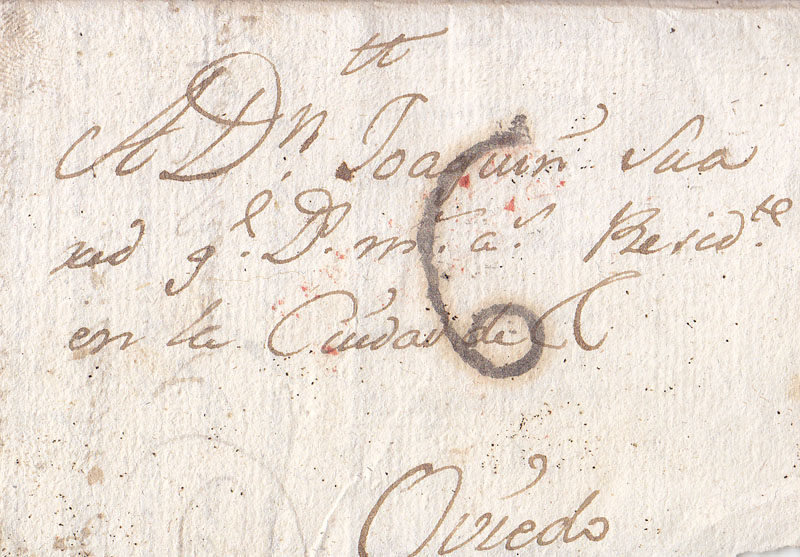 tt
A Dn. Joaquin Sua
red ge. D. ms. as. Resid.te
en la Ciudad de
Oviedo
6